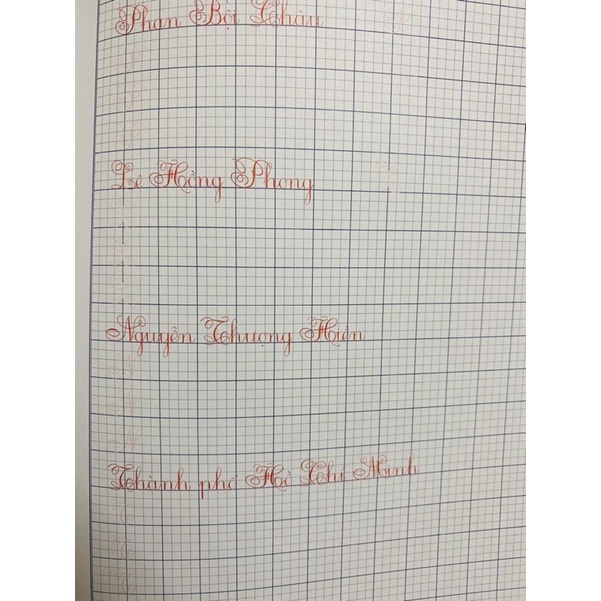 Phan Bội Châu
Lê Hồng Phong
Nguyễn Thượng Hiền
Thành phố Hồ Chí Minh